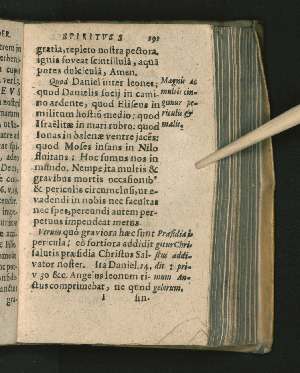 SPIRITUS 191
gratia, repleto nostra pectora,
ignis foveat scintillula, aquā
potes dulciculā, Amen.
Quod Daniel inter leones,
quod Danielis socij in cami
no ardente, quod Elisens in
militum hostiũ medio: quod
Israëlitæ in mari rubro: quod
Ionas in balenæ ventre jacēs:
quod Moses infans in Nilo
fluitans: Hoc sumus nos in
mũndo. Nempe ita multis &
gravibus mortis occasionibꝰ
& periculis circumclusi, ut e-
vadendi in nobis nec facultas
nec spes, pereundi autem per-
petuus impendeat metus.
Verum quò graviora hæc sunt
pericula; eò fortiora addidit
salutis præsidia Christus Sal-
vator noster. Ita Daniel. 14.
v 30 &c. Angelus leonum ri-
ctus comprimebat, ne quid
I
Magnis ac
multis cin-
guntur pe-
riculis &
malis,
Præsidia
gitur Chri-
stus addi-
dit: pri-
mum An-
gelorum.